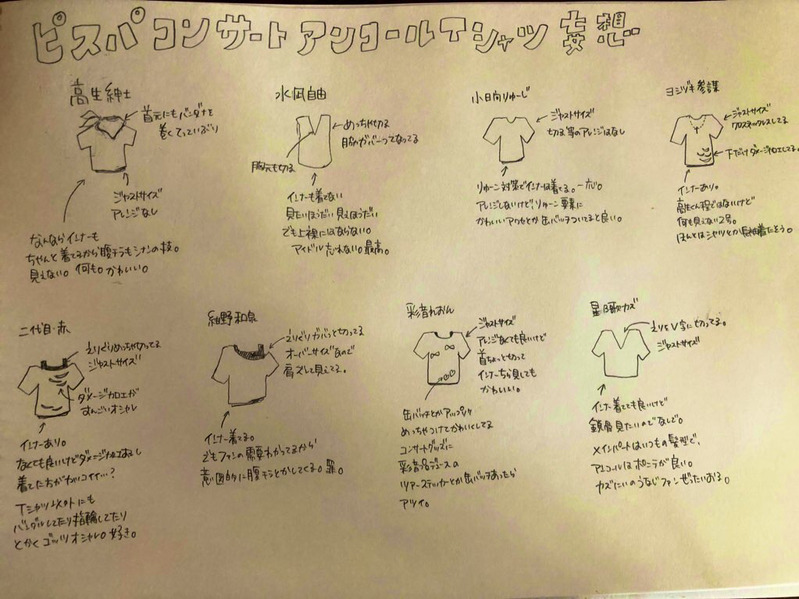 ピスパ コンサート アンコールTシャツ 妄想
高生紳士
首元にもバンダナを
巻くていっぷり
ジャストサイズ
アレンジなし
なんならインナーも
ちゃんと着てるから腹チラもシナンの技。
見えない。何も。かわいい。
水凪自由
めっちゃ切る
脇がガバーってなってる
胸元も切る
インナーも着てない
見たいほうだい 見えほうだい
でも上裸にはならない。
アイドル 忘れない。最高。
小日向りゅーじ
ジャストサイズ
切る等のアレンジはなし
りゅーン対策でインナーは着てる。一応。
アレンジしないけどりゅーン
かわいいアクセとか缶バッチついてると良い。
ヨシヅキ参謀
ジャストサイズ
クロスネックレスしてる
下だけダメージ加工してる。
インナーあり。
高生くん程ではないけど
何も見えない2号。
ほんとはシャツとか着たそう。
二代目・赤
えりぐりめっちゃ切ってる
ジャストサイズ
ダメージ加工が
すんごいオシャレ
インナーあり。
なくても良いけどダメージ加工なし
着てた方がカッコイイ…?
Tシャツ以外にも
バングルしてたり指輪してたり
とかくゴッツオシャレ。好き。
紺野和泉
えりぐりガバっと切ってる
オーバーサイズなので
肩ズレして見えてる。
インナー着てる。
でもファンの需要わかってるから
意図的に腹チラとかしてくる。罪。
彩音れおん
ジャストサイズ
アレンジなくても良いけど
首ちょっと切って
インナーちら見しても
かわいい。
缶バッチとかアップリケ
めっちゃつけてかわいくしてる
コンサートグッズに
彩音プロデュースの
ツアーステッカーとか缶バッチあったら
アツイ。
星日歌カズ
えりをV字に切ってる。
ジャストサイズ
インナー着てても良いけど
鎖骨見たいのでなしで。
メインパートはいつもの髪型で、
アンコールはポニテが良い。
カズにいのうなじファンぜったいおる。